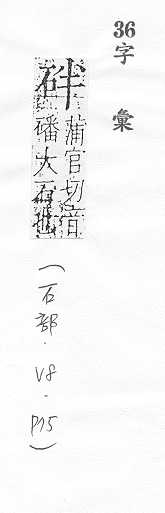 36 字彙
蒲官切音
磻大石也
(石部.V8.P15)